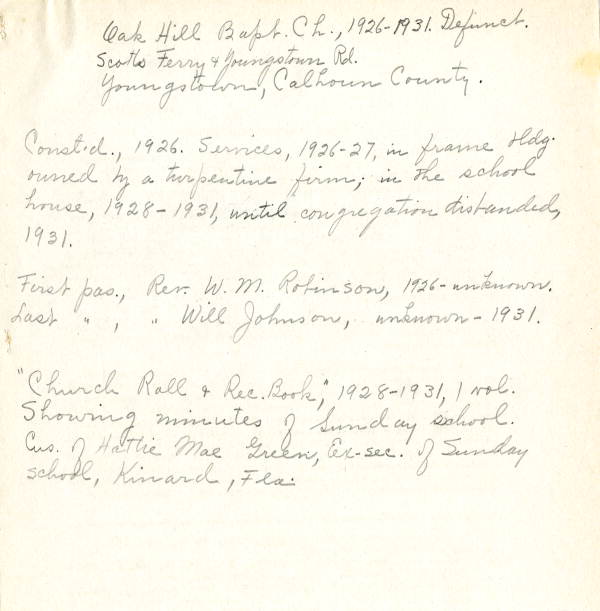 Oak Hill Bapt. Ch., 1926-1931. Defunct.
Scotts Ferry & Youngstown Rd.
Youngstown, Calhoun County.
Const'd., 1926. Services, 1926-27, in frame bldg.
owned by a turpentine firm; in the school
house, 1928-1931, until congregation disbanded,
1931.
First pas., Rev. W. M. Robinson, 1926-unknown.
Last " , " Will Johnson, unknown-1931.
"Church Roll & Rec. Book", 1928-1931, 1 vol.
Showing minutes of Sunday school.
Cus. of Hattie Mae Green, Ex-sec. of Sunday
school, Kinard, Fla.